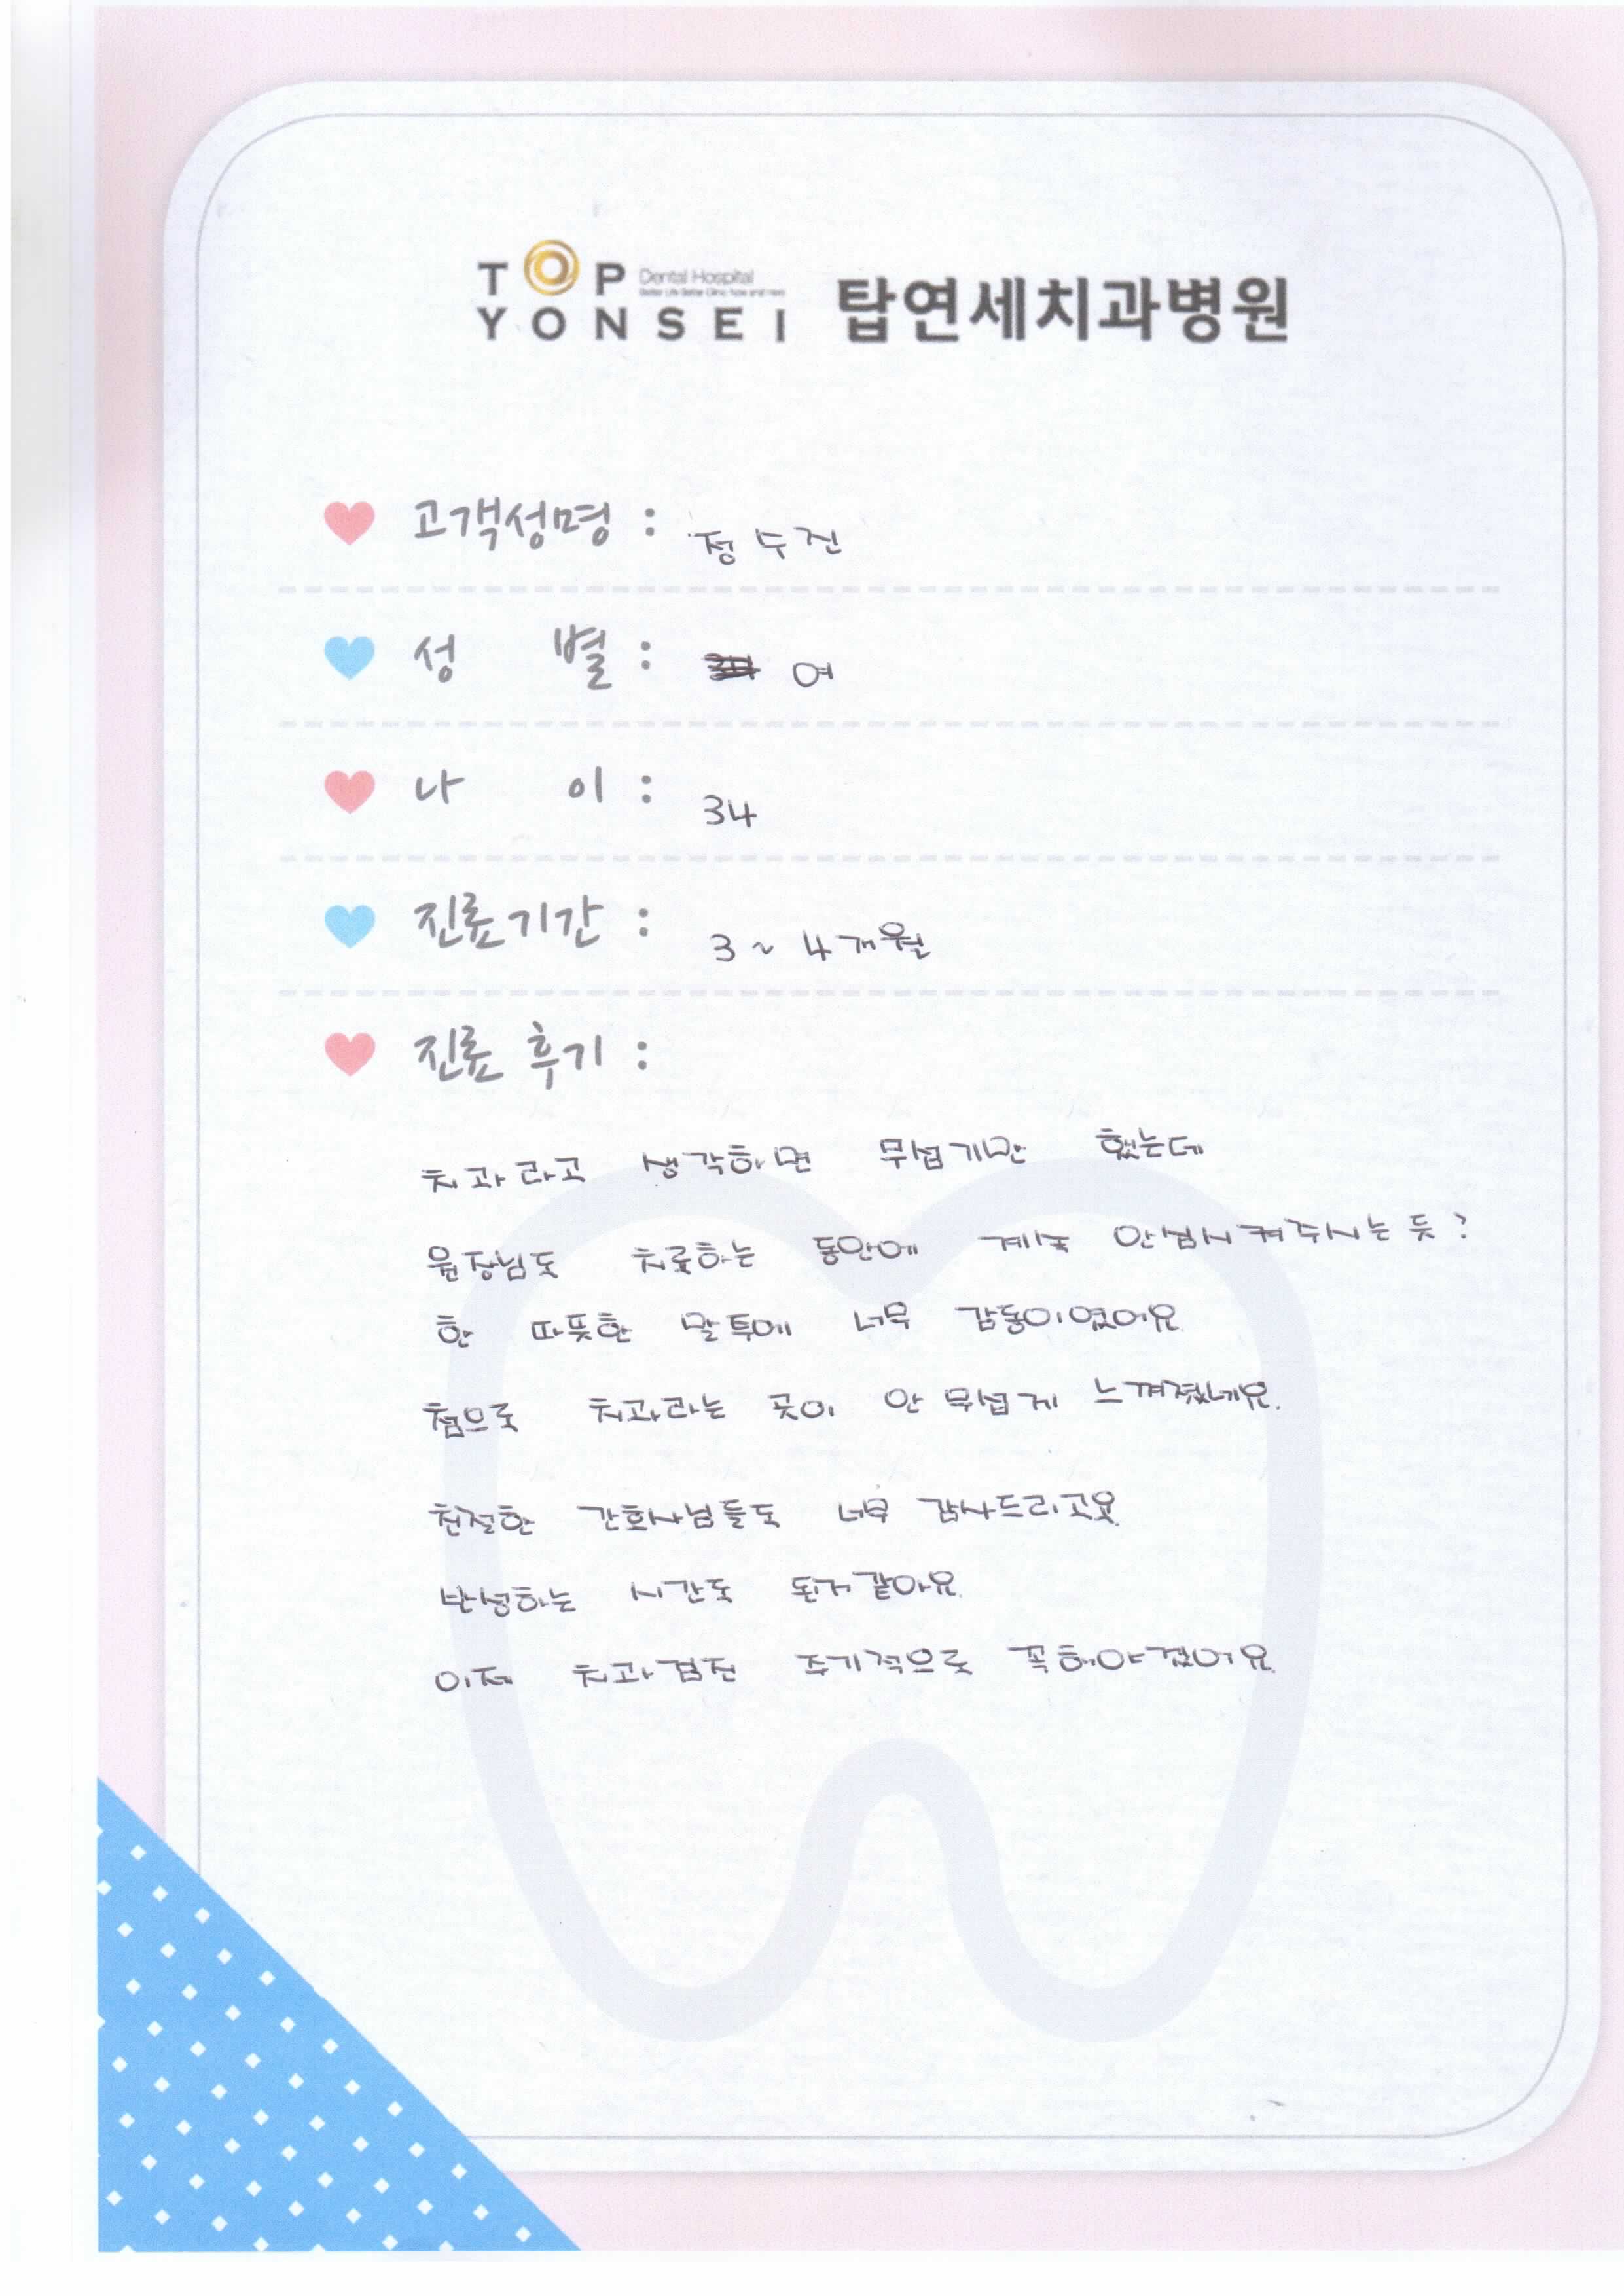 TOP Dental Hospital
YONSEI 탑연세치과병원
고객성명 : 정수진
성 별 : 여
나 이 : 34
진료기간 : 3 ~ 4개월
진료 후기 :
치과라고 생각하면 무섭기만 했는데
원장님도 치료하는 동안에 계속 안심시켜주시는 듯?
한 따뜻한 말투에 너무 감동이였어요.
첨으로 치과라는 곳이 안 무섭게 느껴졌네요.
친절한 간호사님들도 너무 감사드리고요.
반성하는 시간도 된거같아요.
이제 치과검진 주기적으로 꼭 해야겠어요.